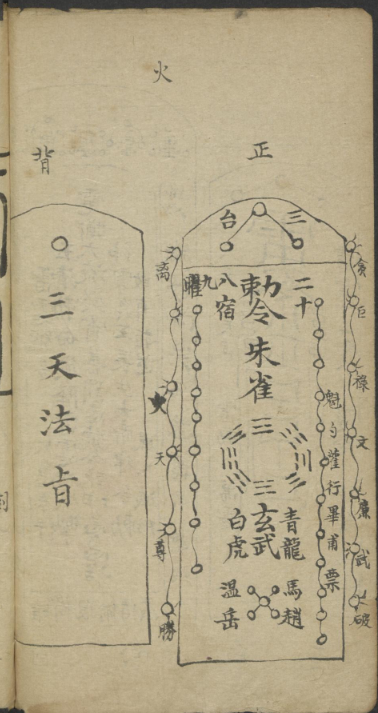 火
正
貪
巨
祿
文
廉
武
破
三台
二十八宿
九曜
勅令
朱雀
玄武
青龍
白虎
馬趙
温岳
魁勺雚行畢甫票
火
天
尊
勝
背
三天法旨